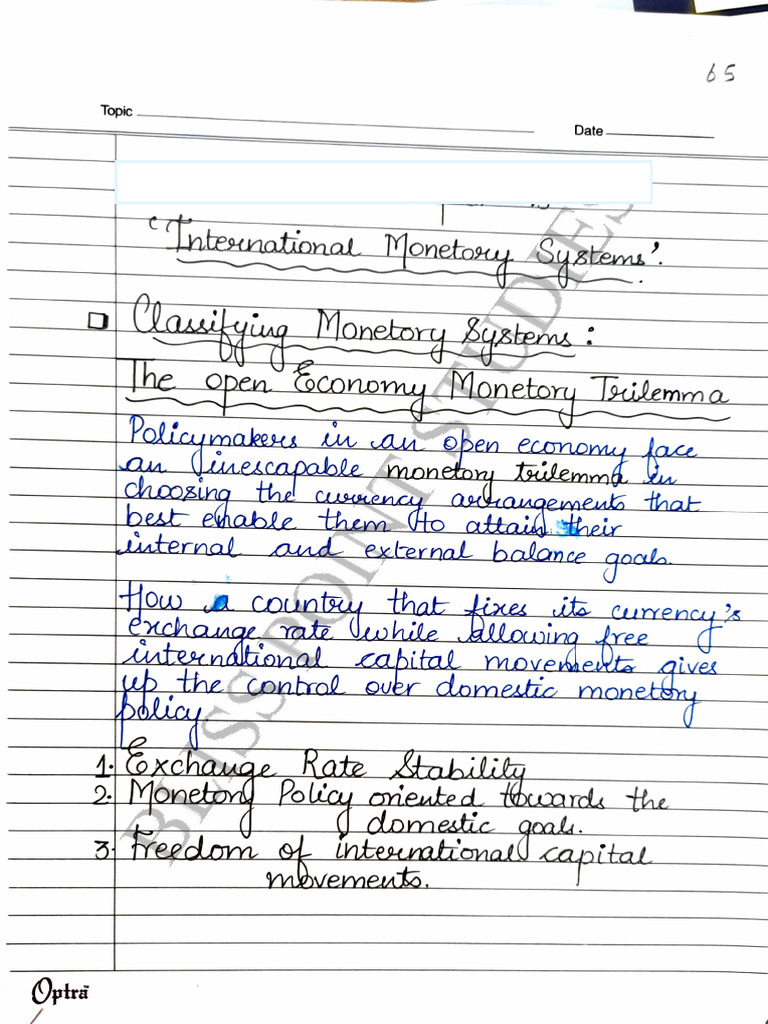 65
Topic
Date
'International Monetory Systems'.
Classifying Monetory Systems :
The open Economy Monetory Trilemma
Policymakers in an open economy face
an inescapable monetory trilemma in
choosing the currency arrangements that
best enable them to attain their
internal and external balance goals.
How a country that fixes its currency's
exchange rate while allowing free
international capital movements gives
up the control over domestic monetory
policy
1. Exchange Rate Stability
2. Monetory Policy oriented towards the
domestic goals.
3. Freedom of international capital
movements.
BLISS POINT STUDIES
Optra